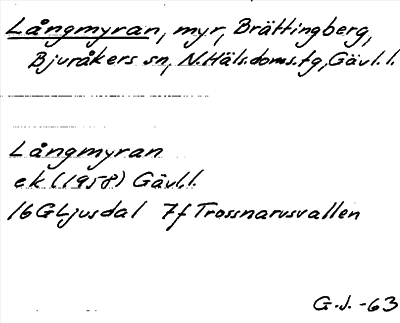 Långmyran, myr, Brättingberg,
Bjuråkers sn, N.Häls.doms.tg, Gävl.l.
Långmyran
ek (1958) Gävl.l.
16G Ljusdal 7f Trossnarvsvallen
G.J. -63